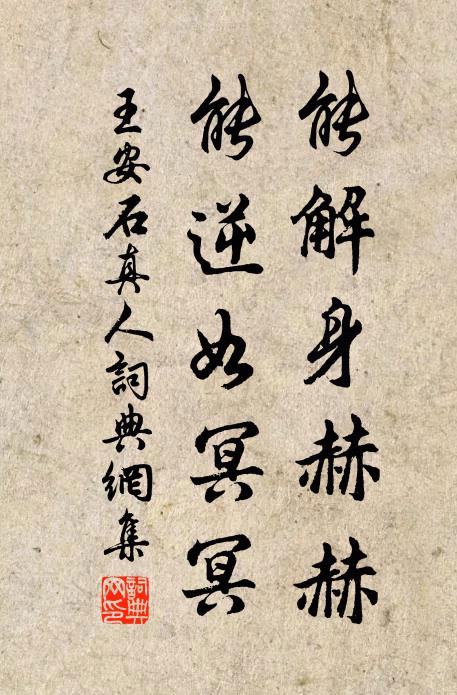 能解身赫赫
能逆如冥冥
王安石真人詞典網集
詞典
网印